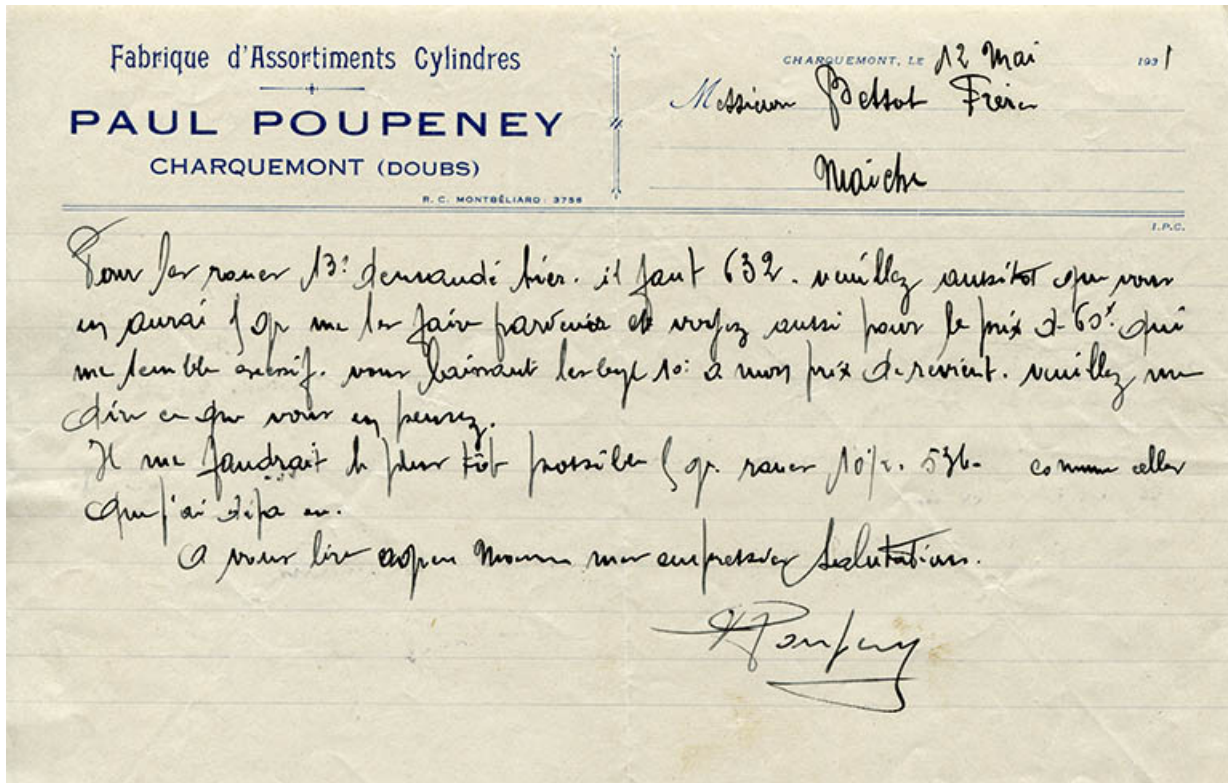 Fabrique d'Assortiments Cylindres
PAUL POUPENEY
CHARQUEMONT (DOUBS)
R. C. MONTBÉLIARD : 3756
CHARQUEMONT, LE 12 Mai 1931
Messieurs Bessot Frères
Maiche
I.P.C.
Pour les roues 13 demandé hier. il faut 632. veuillez aussitot que vous
en aurai me les faire parvenir et voyez aussi pour le prix de qui
me semble exessif. vous laissant les 10 a mon prix de revient. veuillez me
dire ce que vous en pensez.
Il me faudrait le plus tôt possible roues 10 comme celles
que j'ai déja eu.
a vous lire mes empressées Salutations.
Poupeney